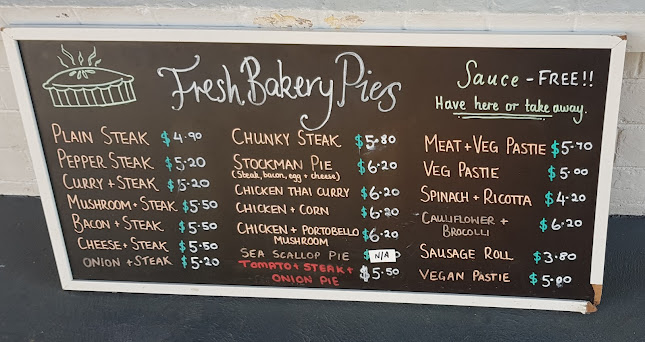 Fresh Bakery Pies
Sauce - FREE!!
Have here or take away.
PLAIN STEAK $4.90
PEPPER STEAK $5.20
CURRY + STEAK $5.20
MUSHROOM + STEAK $5.50
BACON + STEAK $5.50
CHEESE + STEAK $5.50
ONION + STEAK $5.20
CHUNKY STEAK $5.80
STOCKMAN PIE $6.20
(Steak, bacon, egg + cheese)
CHICKEN THAI CURRY $6.20
CHICKEN + CORN $6.20
CHICKEN + PORTOBELLO
MUSHROOM $6.20
SEA SCALLOP PIE $ N/A
TOMATO + STEAK +
ONION PIE $5.50
MEAT + VEG PASTIE $5.70
VEG PASTIE $5.00
SPINACH + RICOTTA $4.20
CAULIFLOWER +
BROCOLLI $6.20
SAUSAGE ROLL $3.80
VEGAN PASTIE $5.00